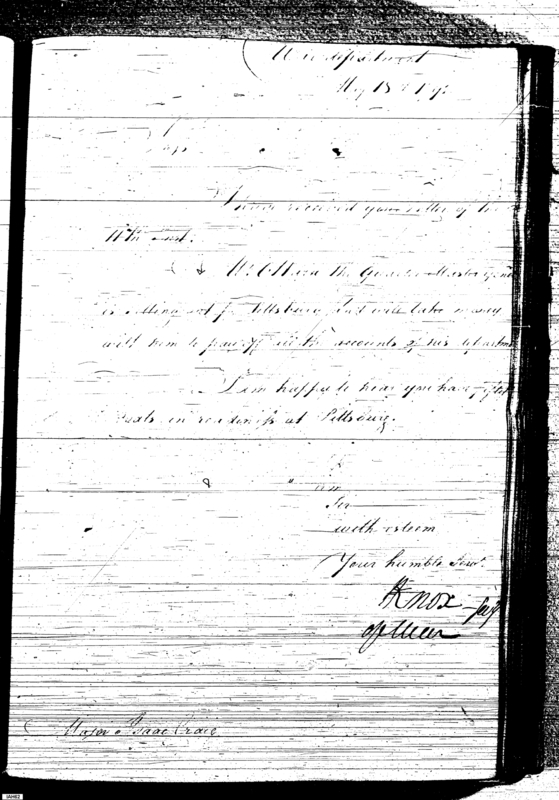 War department
May 18th 179
Sir
I have received your letter of the
11th inst.
Mr. O Hara the Quarter Master Genl
is setting out for Pittsburg but will take money
with him to pay off all the accounts of his department
I am happy to hear you have
boats in readiness at Pittsburg.
I am
Sir
with esteem
Your humble Servt.
H Knox Secy
of War
Major Isaac Craig
IAH62